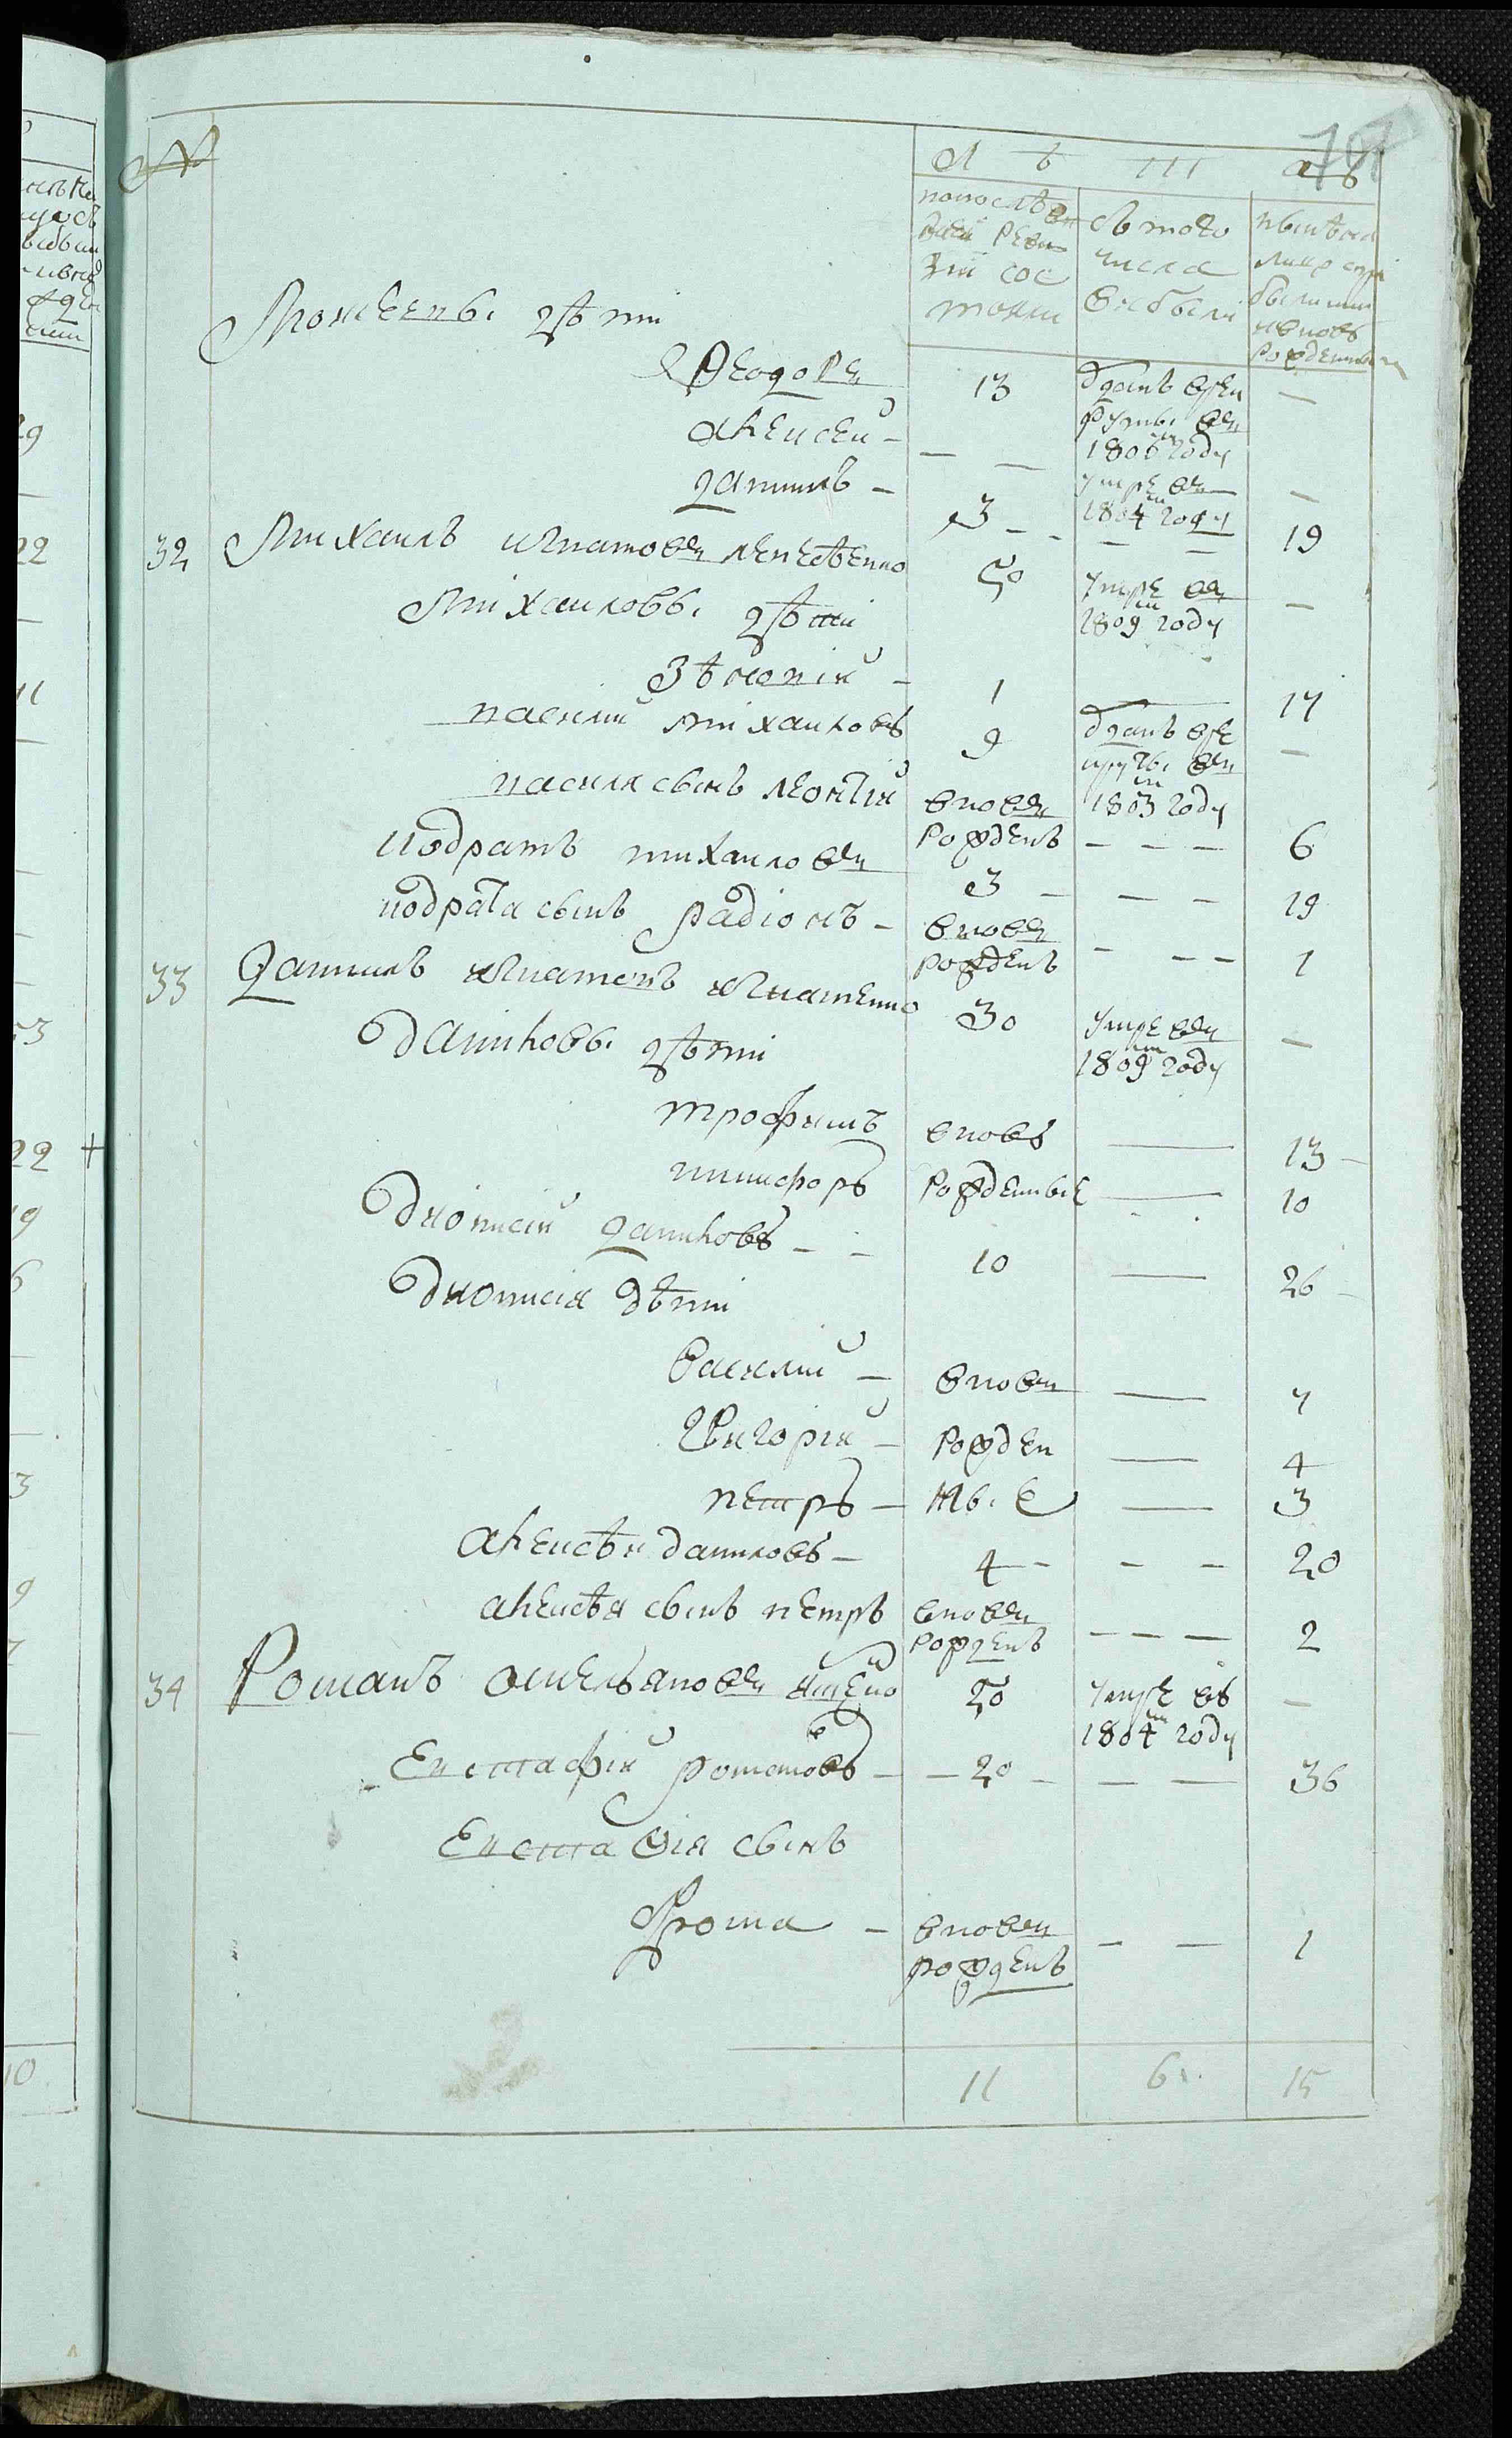 №
Л ѣ т а
по последней ревизіи состояли
съ того числа выбыли
ныне налицо с прибылыми и вновь рожденными
Моисеевы дѣти
Феодоръ 13 отданъ в рекруты въ 1806м году —
Алексей — — — умре въ 1804м году —
Данилъ — 3 — — — 19
32 Михаилъ Игнатовъ 50 умре въ 1809м году —
Михайловы дѣти
Зѣновій — 1 — 17
Василий Михайловъ 9 отданъ в рекруты въ 1803м году —
Василя сынъ Леонтій вновь рожденъ — — — 6
Кодратъ Михайловъ 3 — — — 19
Кодрата сынъ Радіонъ — вновь рожденъ — — — 1
33 Данилъ Игнатовъ Игнатенко 30 умре въ 1809м году —
Даниловы дѣти
Трофимъ вновь — 13
Никифоръ рожденные — 10
Дионисій Даниловъ — — 10 — 26
Дионисія дѣти
Василий — вновь — 7
Григорій — рожден — 4
Петръ — ные — 3
Алексѣй Даниловъ — 4 — — — 20
Алексѣя сынъ Петръ вновь рожденъ — — — 2
34 Романъ Омельяновъ 50 умре въ 1804м году —
Евстафій Романовъ — — 20 — — — 36
Евстафія сынъ
Фома — вновь рожденъ — — 1
11 6 15